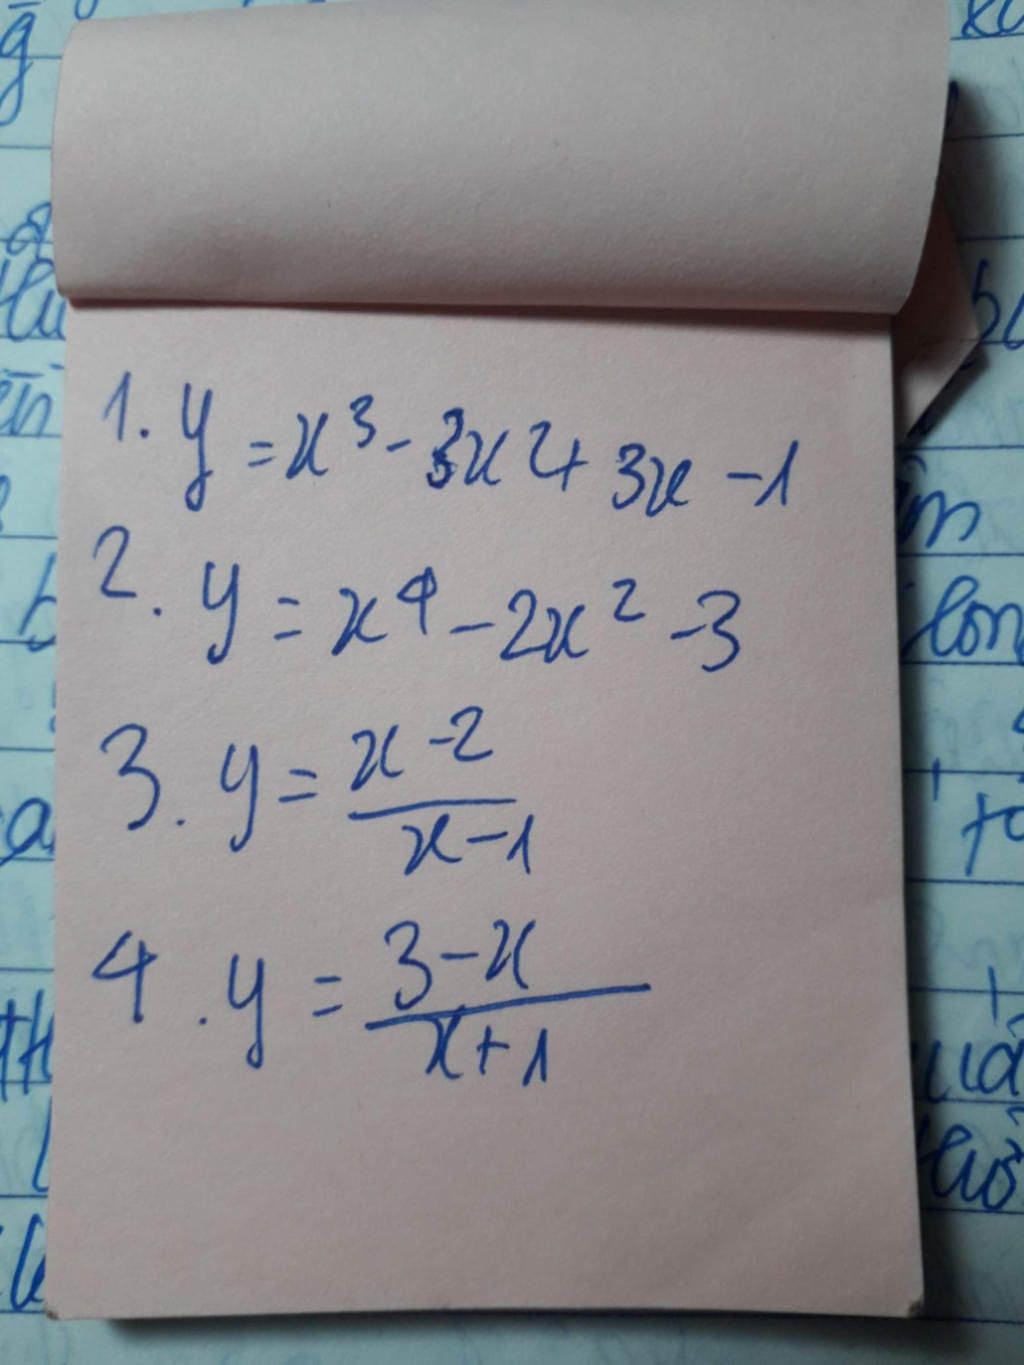 1. y = x³ - 3x² + 3x - 1
2. y = x⁴ - 2x² - 3
3. y = \frac{x-2}{x-1}
4. y = \frac{3-x}{x+1}